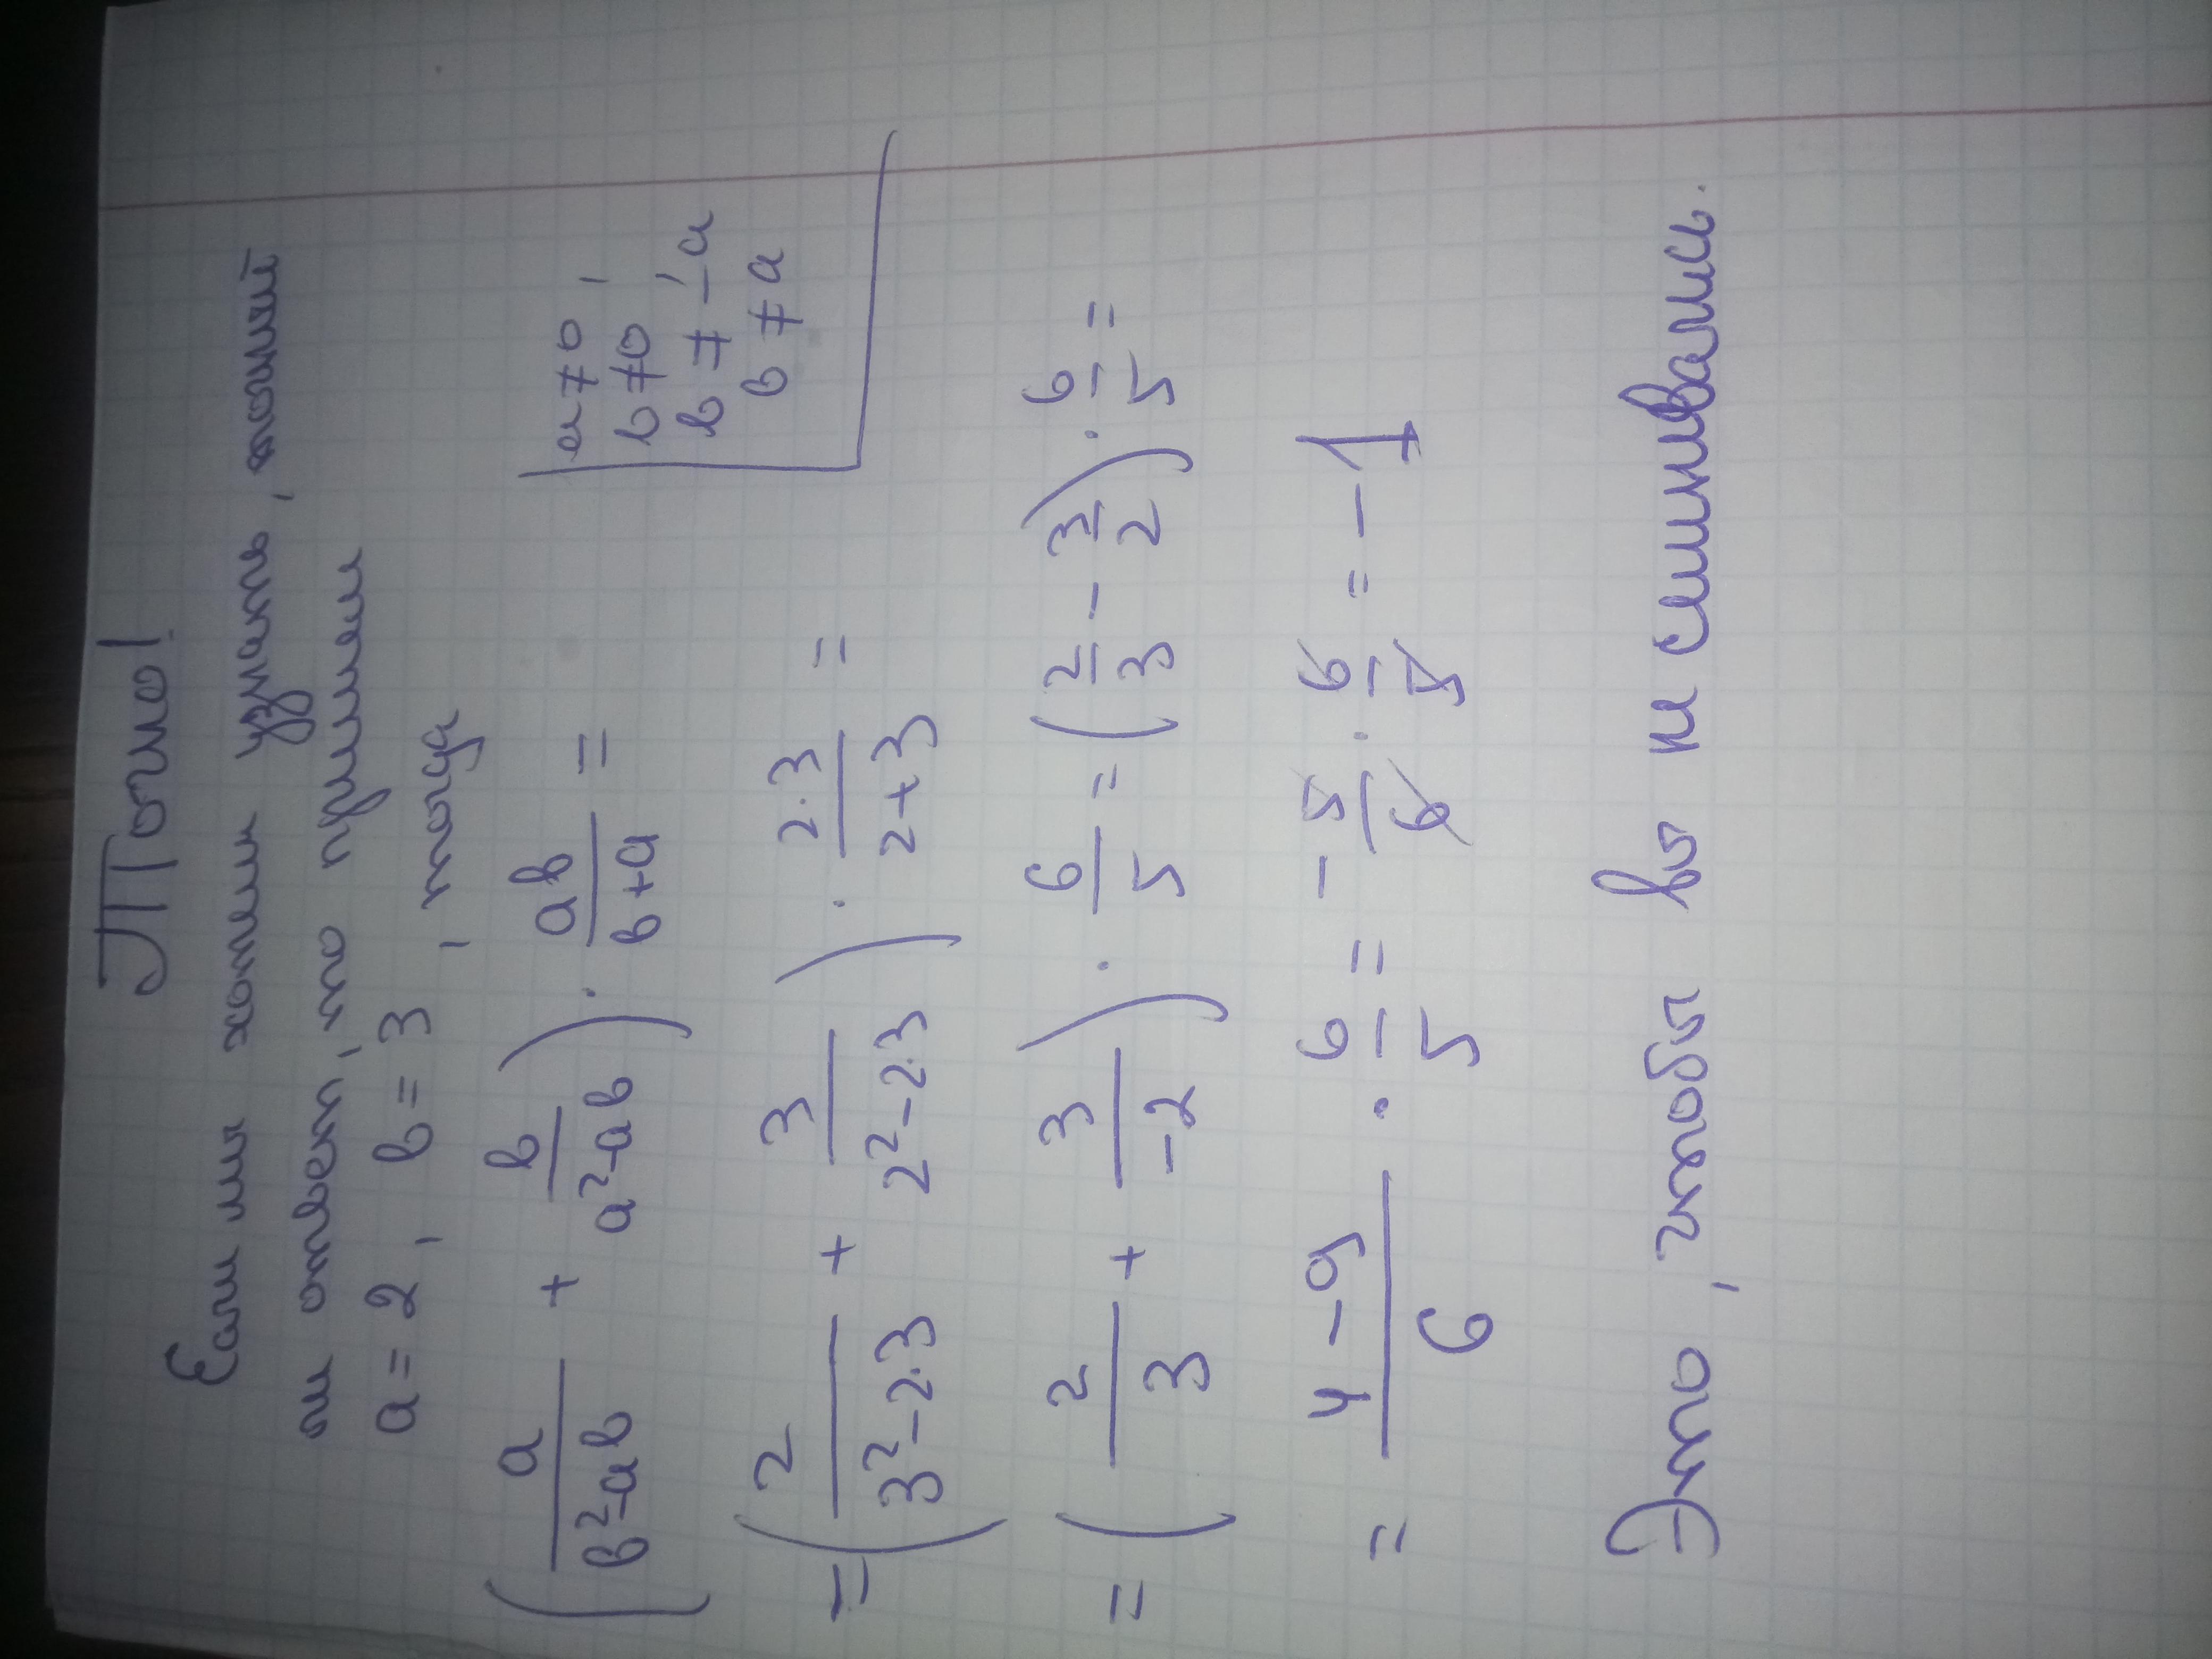 Точно!
Если мы хотим узнать, точный
ли ответ, то примем
a = 2, b = 3, тогда
(a/(b²-ab) + b/(a²-ab)) · ab/(b+a) =
a ≠ 0,
b ≠ 0,
b ≠ -a
b ≠ a
= (2/(3²-2·3) + 3/(2²-2·3)) · (2·3)/(2+3) =
= (2/3 + 3/(-2)) · 6/5 = (2/3 - 3/2) · 6/5 =
= (4-9)/6 · 6/5 = -5/6 · 6/5 = -1
Это, чтобы вы не сомневались.